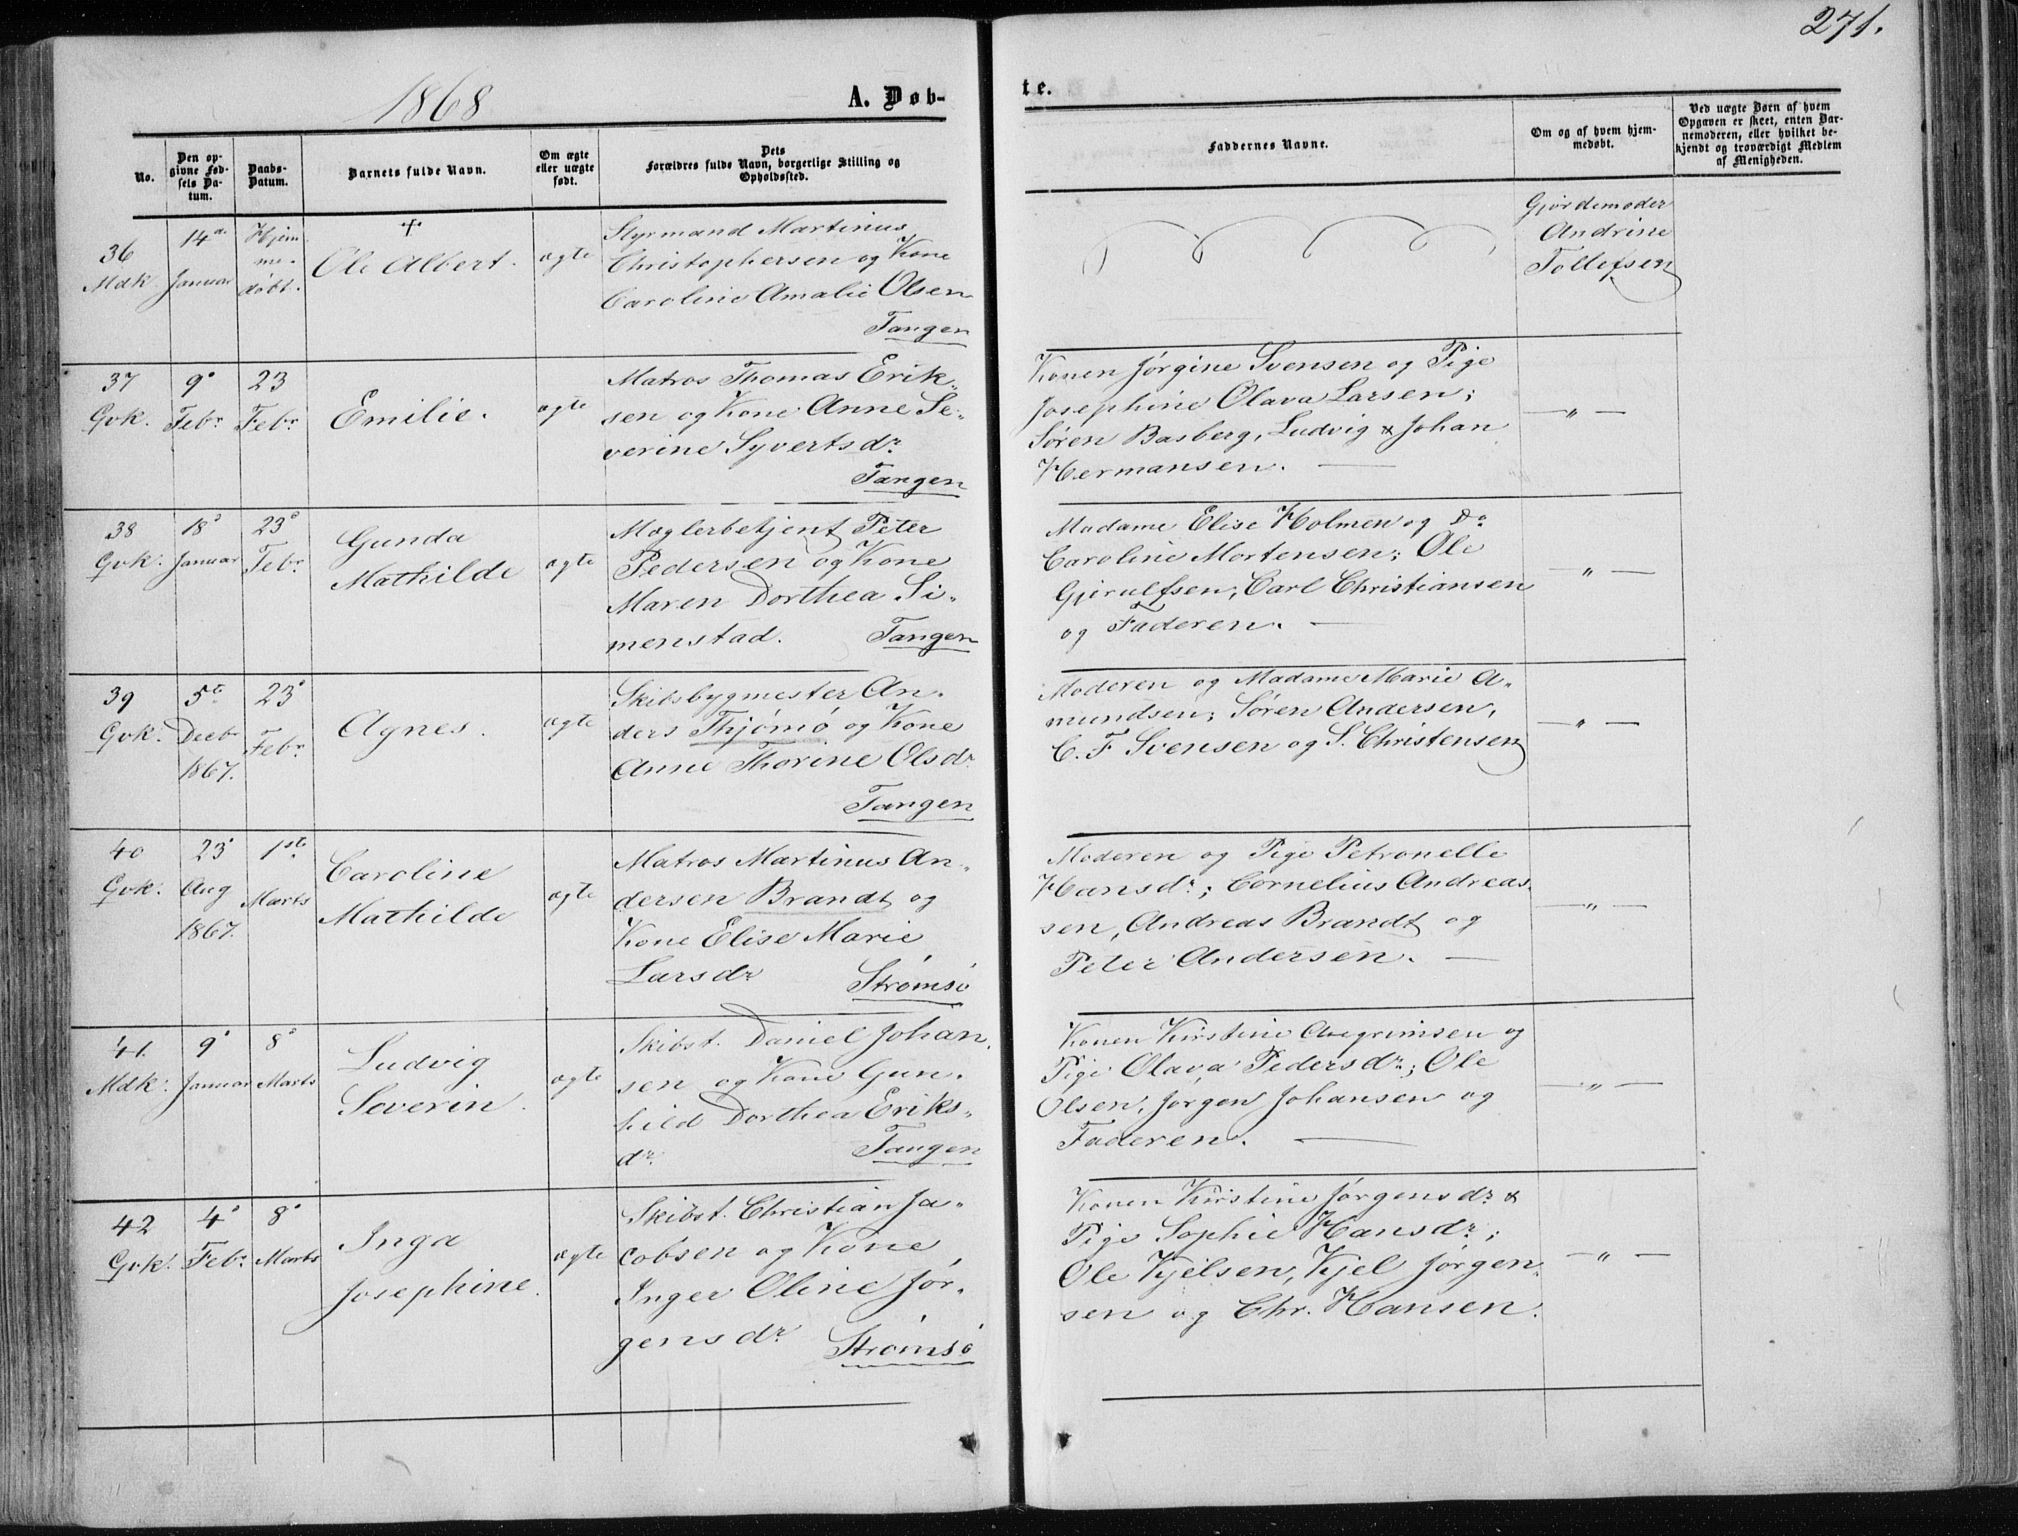 271.
1868
A. Døb-
te.
No.
Den op-
givne Fød-
sels Da-
tum.
Daabs-
Datum.
Barnets fulde Navn.
Om ægte
eller uægte
født.
Dets
Forældres fulde Navn, borgerlige Stilling og
Opholdssted.
Faddernes Navne.
Om og af hvem hjem-
medøbt.
Ved uægte Børn af hvem
Opgaven er skeet, enten Bar-
nemoderen, eller hvilket be-
kjendt og troværdigt Medlem
af Menigheden.
36
Mdk.
14de
Januar
Hjem
me-
døbt.
+
Ole Albert.
ægte
Styrmand Martinus
Christophersen og Kone
Caroline Amalie Olsen
Tangen
Gjordemoder
Andrine
Tollefsen
37
Qvk.
9'
Febr
23
Febr
Emilie.
ægte
Matros Thomas Erik-
sen og Kone Anne Se-
verine Syvertsdr
Tangen
Konen Jørgine Svensen og Pige
Josephine Olava Larsen;
Søren Basberg, Ludvig & Johan
Hermansen. —
— " —
38
Qvk.
18'
Januar
23'
Febr
Gunda
Mathilde
ægte
Mæglerbetjent Peter
Pedersen og Kone
Maren Dorthea Si-
menstad. Tangen
Madame Elise Holmen og Do
Caroline Mortensen; Ole
Gjerulfsen; Carl Christiansen
og Faderen. —
— " —
39
Qvk.
5te
Decbr
1867.
23'
Febr
Agnes.
ægte
Skibsbygmester An-
ders Thjømø og Kone
Anne Thorine Olsdr
Tangen
Moderen og Madame Marie A-
mundsen; Søren Andersen,
C. F Svensen og S. Christensen
— " —
40
Qvk.
23'
Aug
1867.
1ste
Marts
Caroline
Mathilde
ægte
Matros Martinus An-
dersen Brandt og
Kone Elise Marie
Larsdr Strømsø
Moderen og Pige Petronelle
Hansdr; Cornelius Andreas-
sen, Andreas Brandt og
Peter Andersen. —
— " —
41.
Mdk.
9'
Januar
8'
Marts
Ludvig
Severin.
ægte
Skibst. Daniel Johan-
sen og Kone Gun-
hild Dorthea Eriks-
dr. Tangen
Konen Kirstine Avegrimsen og
Pige Olava Pedersdr; Ole
Olsen, Jørgen Johansen og
Faderen. —
— " —
42
Qvk.
4'
Febr
8'
Marts
Inga
Josephine.
ægte
Skibst. Christian Ja-
cobsen og Kone
Inger Oline Jør-
gensdr Strømsø
Konen Kirstine Jørgensdr &
Pige Sophie Hansdr;
Ole Kjelsen, Kjel Jørgen-
sen og Chr. Hansen.
— " —